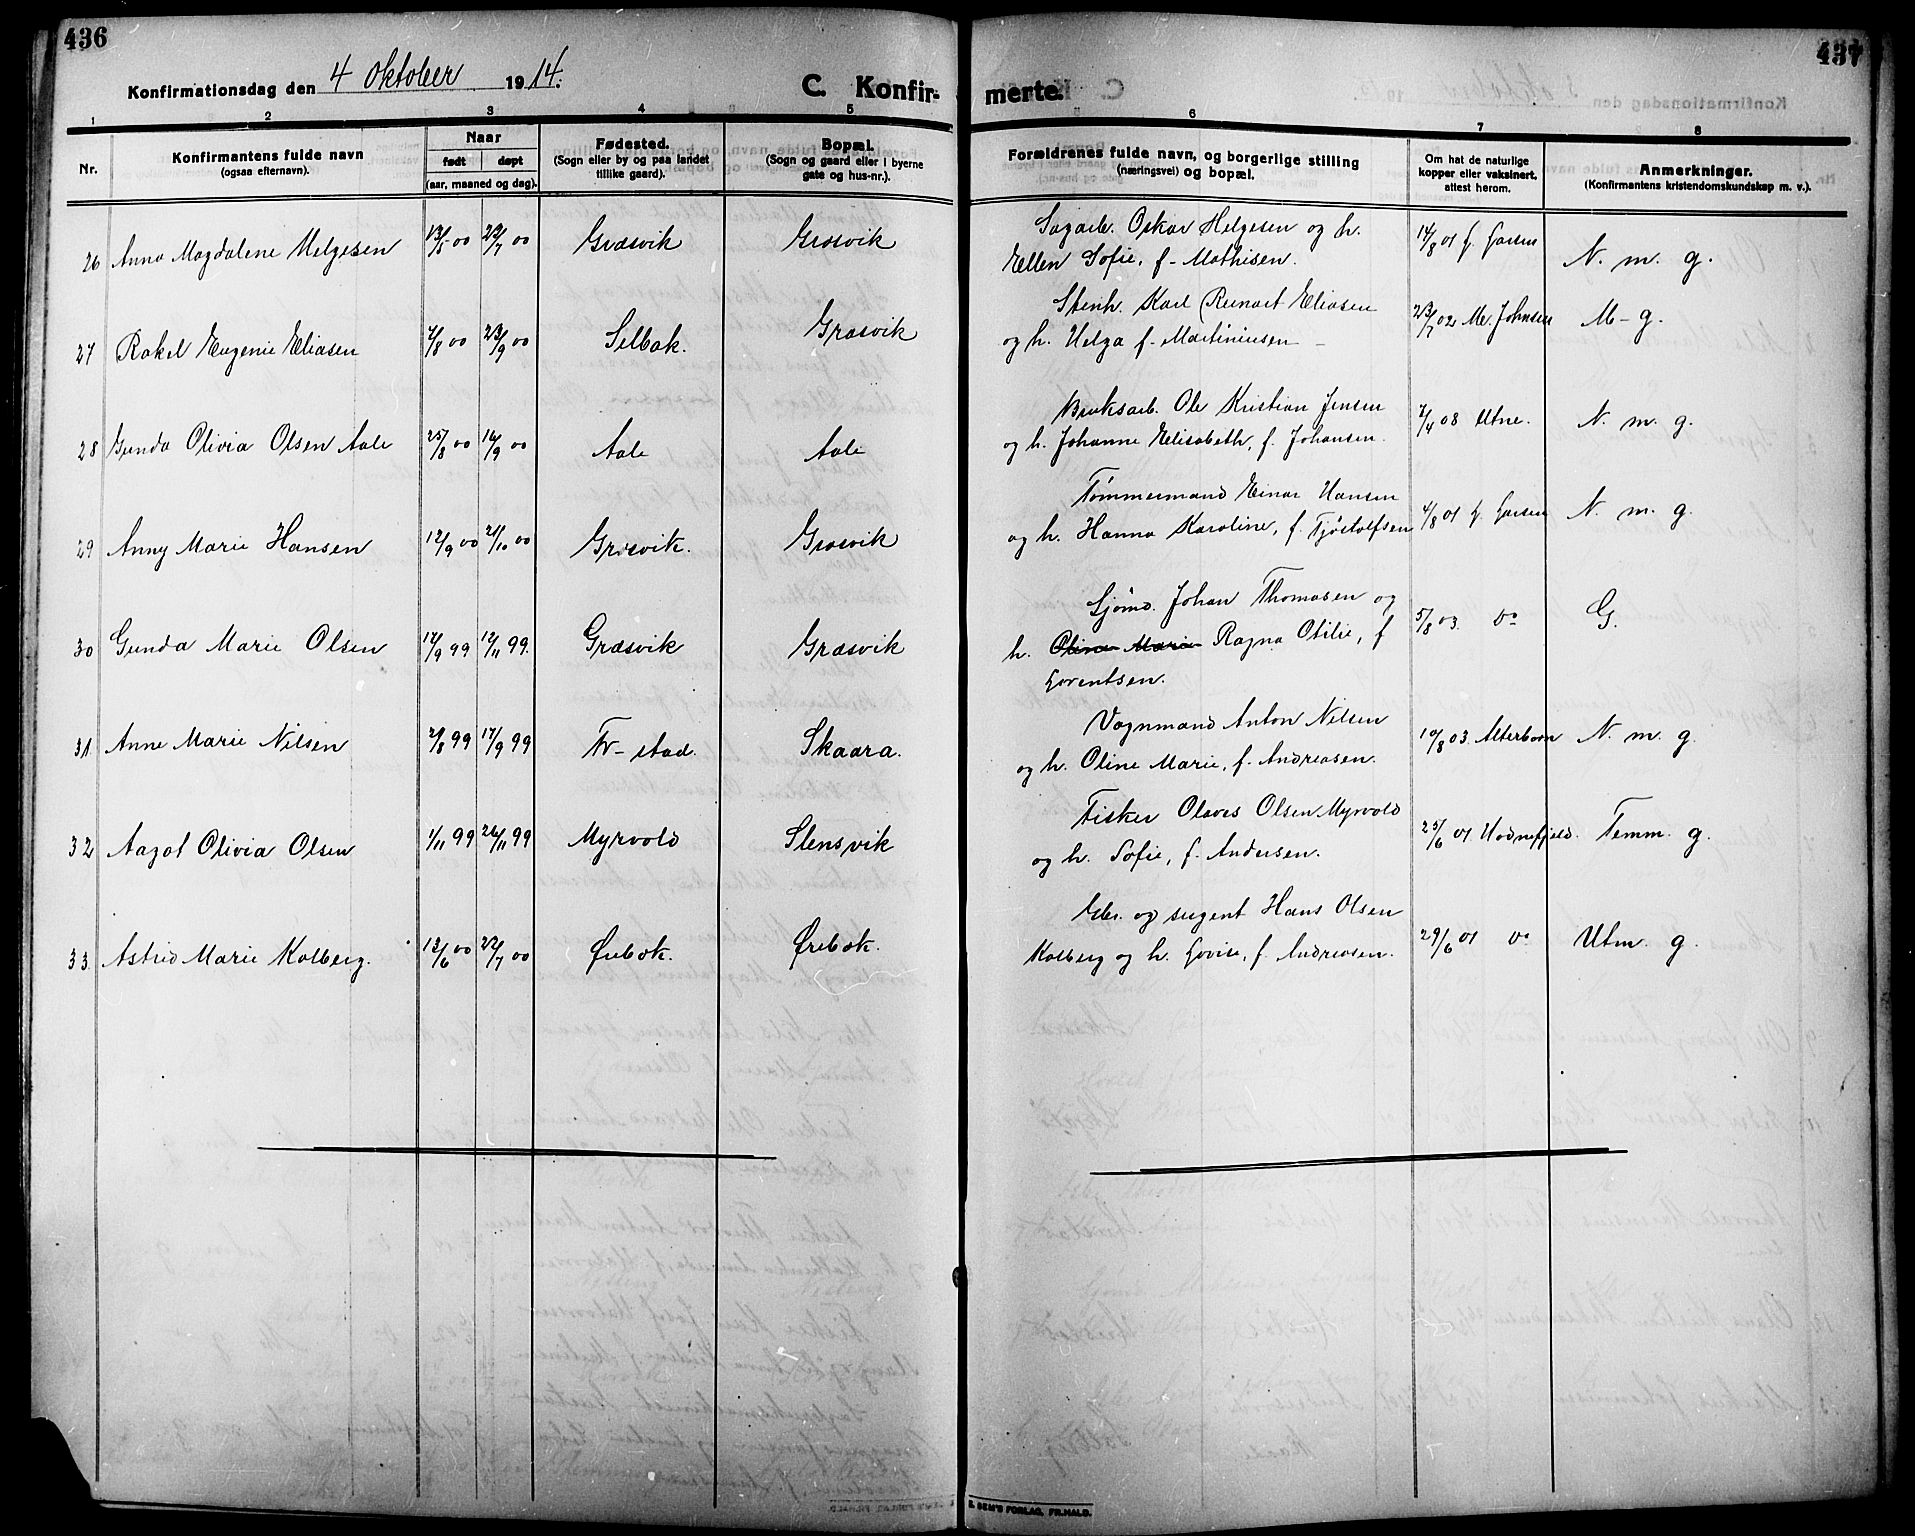 436
Konfirmationsdag den 4 Oktober 1914.
C. Konfir-
1 2 3 4 5
Nr.
Konfirmantens fulde navn
(ogsaa efternavn).
Naar
født døpt
(aar, maaned og dag).
Fødested.
(Sogn eller by og paa landet
tillike gaard).
Bopæl.
(Sogn og gaard eller i byerne
gate og hus-nr.).
26 Anna Magdalene Helgesen 13/5 00 22/7 00 Græsvik Græsvik
27 Rakel Eugenie Eliasen 4/8 00 23/9 00 Selbak. Græsvik
28 Gunda Olivia Olsen Aale 25/8 00 16/9 00 Aale Aale
29 Anny Marie Hansen 12/9 00 21/10 00 Græsvik. Græsvik
30 Gunda Marie Olsen 14/9 99 12/11 99. Græsvik Græsvik
31. Anne Marie Nilsen 2/8 99 17/9 99 Fr-stad. Skaara.
32 Aagot Olivia Olsen 1/11 99 26/11 99 Myrvold Slensvik
33. Astrid Marie Kolberg. 13/6 00 22/7 00 Ørebæk. Ørebæk.
437
merte.
6 7 8
Forældrenes fulde navn, og borgerlige stilling
(næringsvei) og bopæl.
Om hat de naturlige
kopper eller vaksinert,
attest herom.
Anmerkninger.
(Konfirmantens kristendomskundskap m. v.).
Sagarb. Oskar Helgesen og h. 14/8 01 L. Larsen
Ellen Sofie, f. Mathisen. N. m. g.
Stenh. Karl Reinart Eliasen 23/7 02 M. Johnsen M-g.
og h. Helga f. Martiniusen
Bruksarb. Ole Kristian Jensen 7/4 08 Utne. N. m. g.
og h. Johanne Elisabeth, f. Johansen.
Tømmermand Einar Hansen 4/8 01 L. Larsen N. m. g.
og h. Hanna Karoline, f. Tjøstolfsen
Sjømd. Johan Thomasen og 5/8 03. do G.
h. Oline Marie Ragna Otilie, f
Lorentsen.
Vognmand Anton Nilsen 10/8 03. Alterboen N. m. g.
og h. Oline Marie, f. Andreasen.
Fisker Olaves Olsen Myrvold 25/6 01 Hodnefjeld. Temm. g.
og h. Sofie, f. Andersen.
Gbr. og Hans Olsen
Kolberg og h. Lovise, f. Andreasen. 29/6 01 do Utm. g.
E. SEM'S FORLAG, FR.HALD.